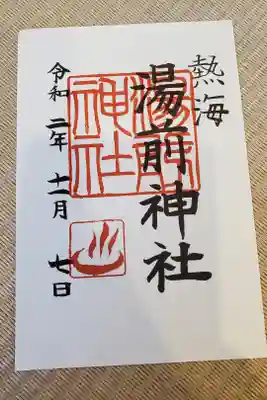 熱海
湯前神社
湯前神社
令和二年十一月七日